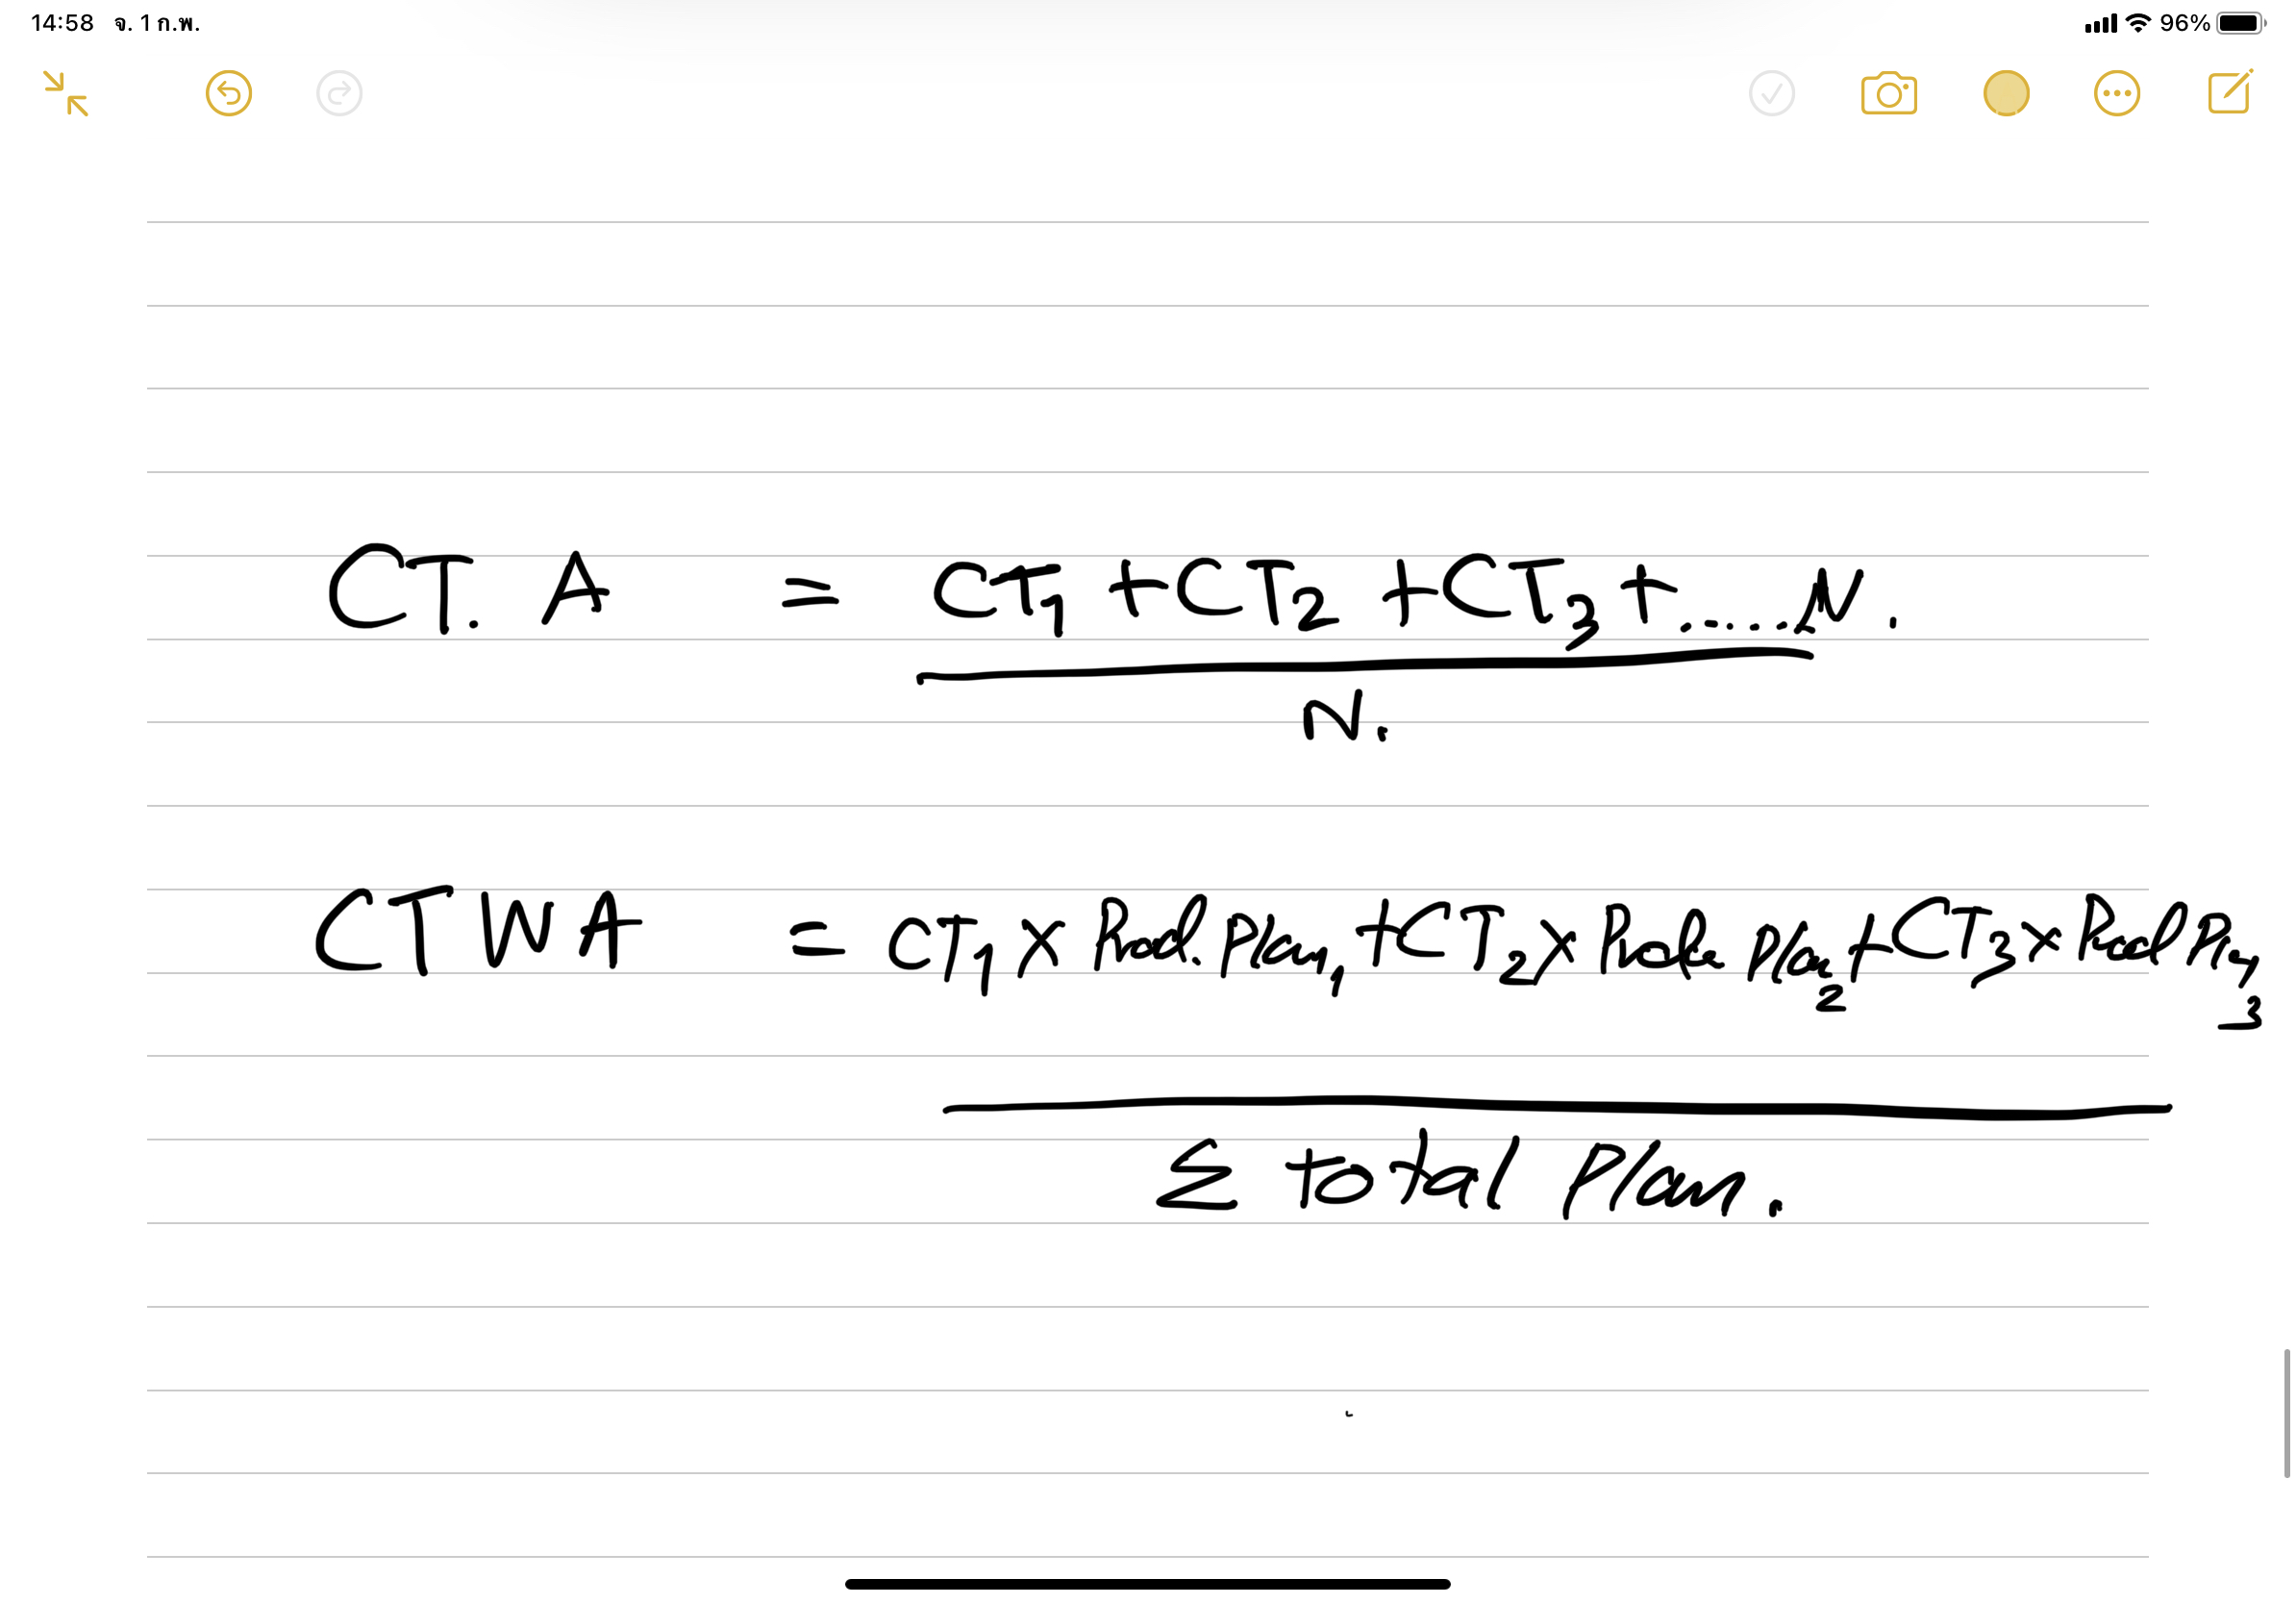 14:58 จ. 1 ก.พ. 96%
CT. A = CT1 + CT2 + CT3 + ..... N.
N.
CTWA = CT1 x Prod. Plan1 + CT2 x Prod. Plan2 + CT3 x Prod Plan3
Σ total Plan.